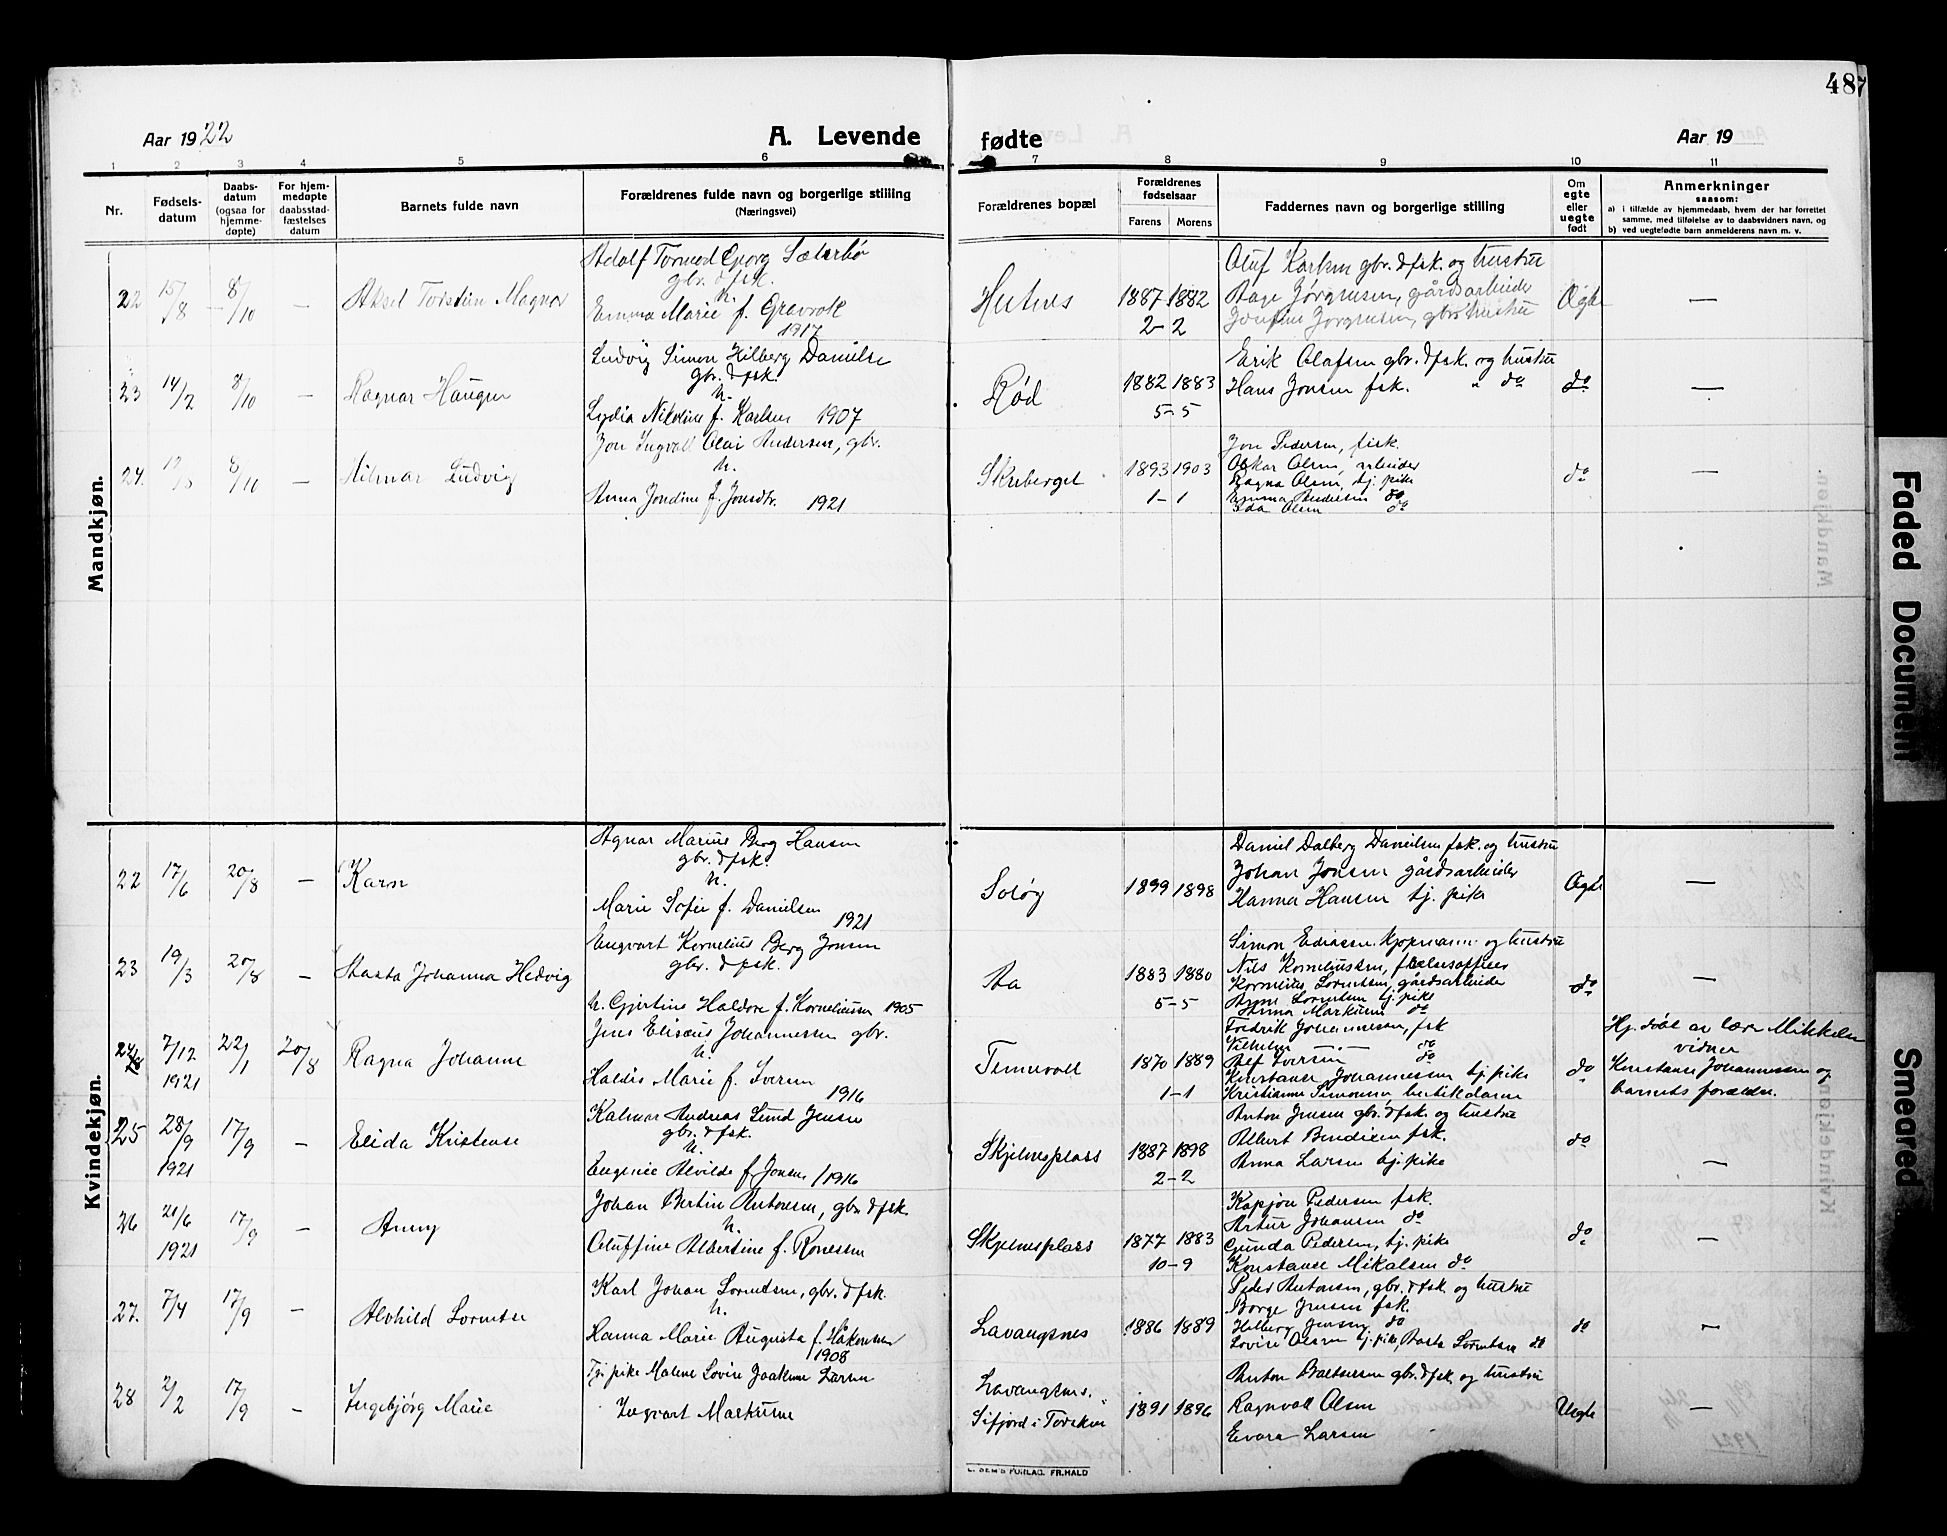 487
Aar 1922
A. Levende
fødte
Aar 19
1 2 3 4 5 6 7 8 9 10 11
Nr.
Fødsels-
datum
Daabs-
datum
(ogsaa for
hjemme-
døpte)
For hjem-
medøpte
daabsstad-
fæstelses
datum
Barnets fulde navn
Forældrenes fulde navn og borgerlige stilling
(Næringsvei)
Forældrenes bopæl
Forældrenes
fødselsaar
Farens Morens
Faddernes navn og borgerlige stilling
Om
egte
eller
uegte
født
Anmerkninger
saasom:
a) i tilfælde av hjemmedaab, hvem der har forrettet
samme, med tilføielse av to daabsvidners navn, og
b) ved uegtefødte barn anmelderens navn m. v.
Mandkjøn.
22 15/8 8/10 — Aksel Torstein Magnor
Adolf Tormod Georg Sæterbø
gbr. & fsk.
h.
Emma Marie f. Gravrok
1917
1887 1882
2 – 2
Oluf Karlsen gbr. & fsk. og hustru
Aage Jørgensen, gårdsarbeider
Josefine Jørgensen, gbr. hustru
Ægte
—
23 14/2 8/10 — Ragnar Haugen
Ludvig Simon Hilberg Danielse
gbr. & fsk.
h.
Lydia Nikoline f. Karlsen 1907
Rød
1882 1883
5 – 5
Erik Olafsen gbr. & fsk. og hustru
Hans Jonsen fsk. " do
do
—
24. 8/10 — Hilmar Ludvig
Jon Ingvall Olai Andersen, gbr.
h.
Anna Jondine f. Jonsdtr. 1921
Skreberget
1893 1903
1 – 1
Jon Pedersen, fisk.
Oskar Olsen, arbeider
Ragna Olsen, tj. pike
Emma Andersen do
Ida Olsen do
do
—
Kvindekjøn.
22 17/6 20/8 — Karen
Agnar Marius Berg Hansen
gbr. & fsk.
h.
Marie Sofie f. Danielsen
1921
Soløy
1899 1898
Daniel Dalberg Danielsen fsk. og hustru
Johan Jonsen gårdsarbeider
Hanna Hansen tj. pike
Ægte
—
23 19/3 20/8 — Aasta Johanna Hedvig
Engvart Kornelius Berg Jonsen
gbr. & fsk.
h. Gjertine Haldora f. Korneliussen 1905
Aa
1883 1880
5 – 5
Simon Ediassen Kjøpmann og hustru
Nils Korneliussen,
Kornelius Lorentsen, gårdsarbeider
Anna Lorentsen tj. pike
Anna Markusen do
do
—
24 7/12 1921 22/1 20/8 Ragna Johanne
Jens Elisæus Johannessen gbr.
h.
Haldis Marie f. Iversen
1916
Tennevoll
1870 1889
1 – 1
Fredrik Johannessen, fsk
Vilhelm — " — do
Alf Iversen do
Konstanse Johannessen tj. pike
Kristianne Simonsen butikdame
do
Hj. døbt av lær. Mikkelsen
vidner
Konstanse Johannessen og
barnets forældre.
25 28/9 1921 17/9 — Elida Kristense
Kalmar Andreas Lund Jensen
gbr. & fsk.
h.
Eugenie Alvilde f. Jonsen 1916
Skjelnesplass
1887 1898
2 – 2
Anton Jensen gbr. & fsk. og hustru
Albert Bendixen fsk.
Anna Larsen tj. pike
do
—
26 21/6 1921 17/9 — Anny
Johan Bertin Antonsen, gbr. & fsk.
h.
Oluffine Albertine f. Ronessen
Skjelnesplass
1877 1883
10 – 9
Kapjon Pedersen fsk.
Artur Johansen do
Gunda Pedersen, tj. pike
Konstanse Mikalsen do
do
—
27. 7/4 17/9 — Alvhild Lorentse
Karl Johan Lorentsen, gbr. & fsk.
h.
Hanna Marie Augusta f. Håkonsen
1908
Lavangsnes
1886 1889
Peder Antonsen, gbr. & fsk. og hustru
Borge Jensen fsk.
Hilberg Jensen do
Lovise Olsen tj. pike, Aasta Lorentsen do
do
—
28 2/2 17/9 — Ingebjørg Marie
Tj. pike Malene Lovise Joakime Larsen
Ingvart Markusen
Lavangsnes.
Sifjord i Torsken
1891 1896
Anton Baltersen gbr. & fsk. og hustru
Ragnvall Olsen
Evora Larsen
Uegte
—
E. SEM'S FORLAG. FR.HALD
Faded Document
Smeared